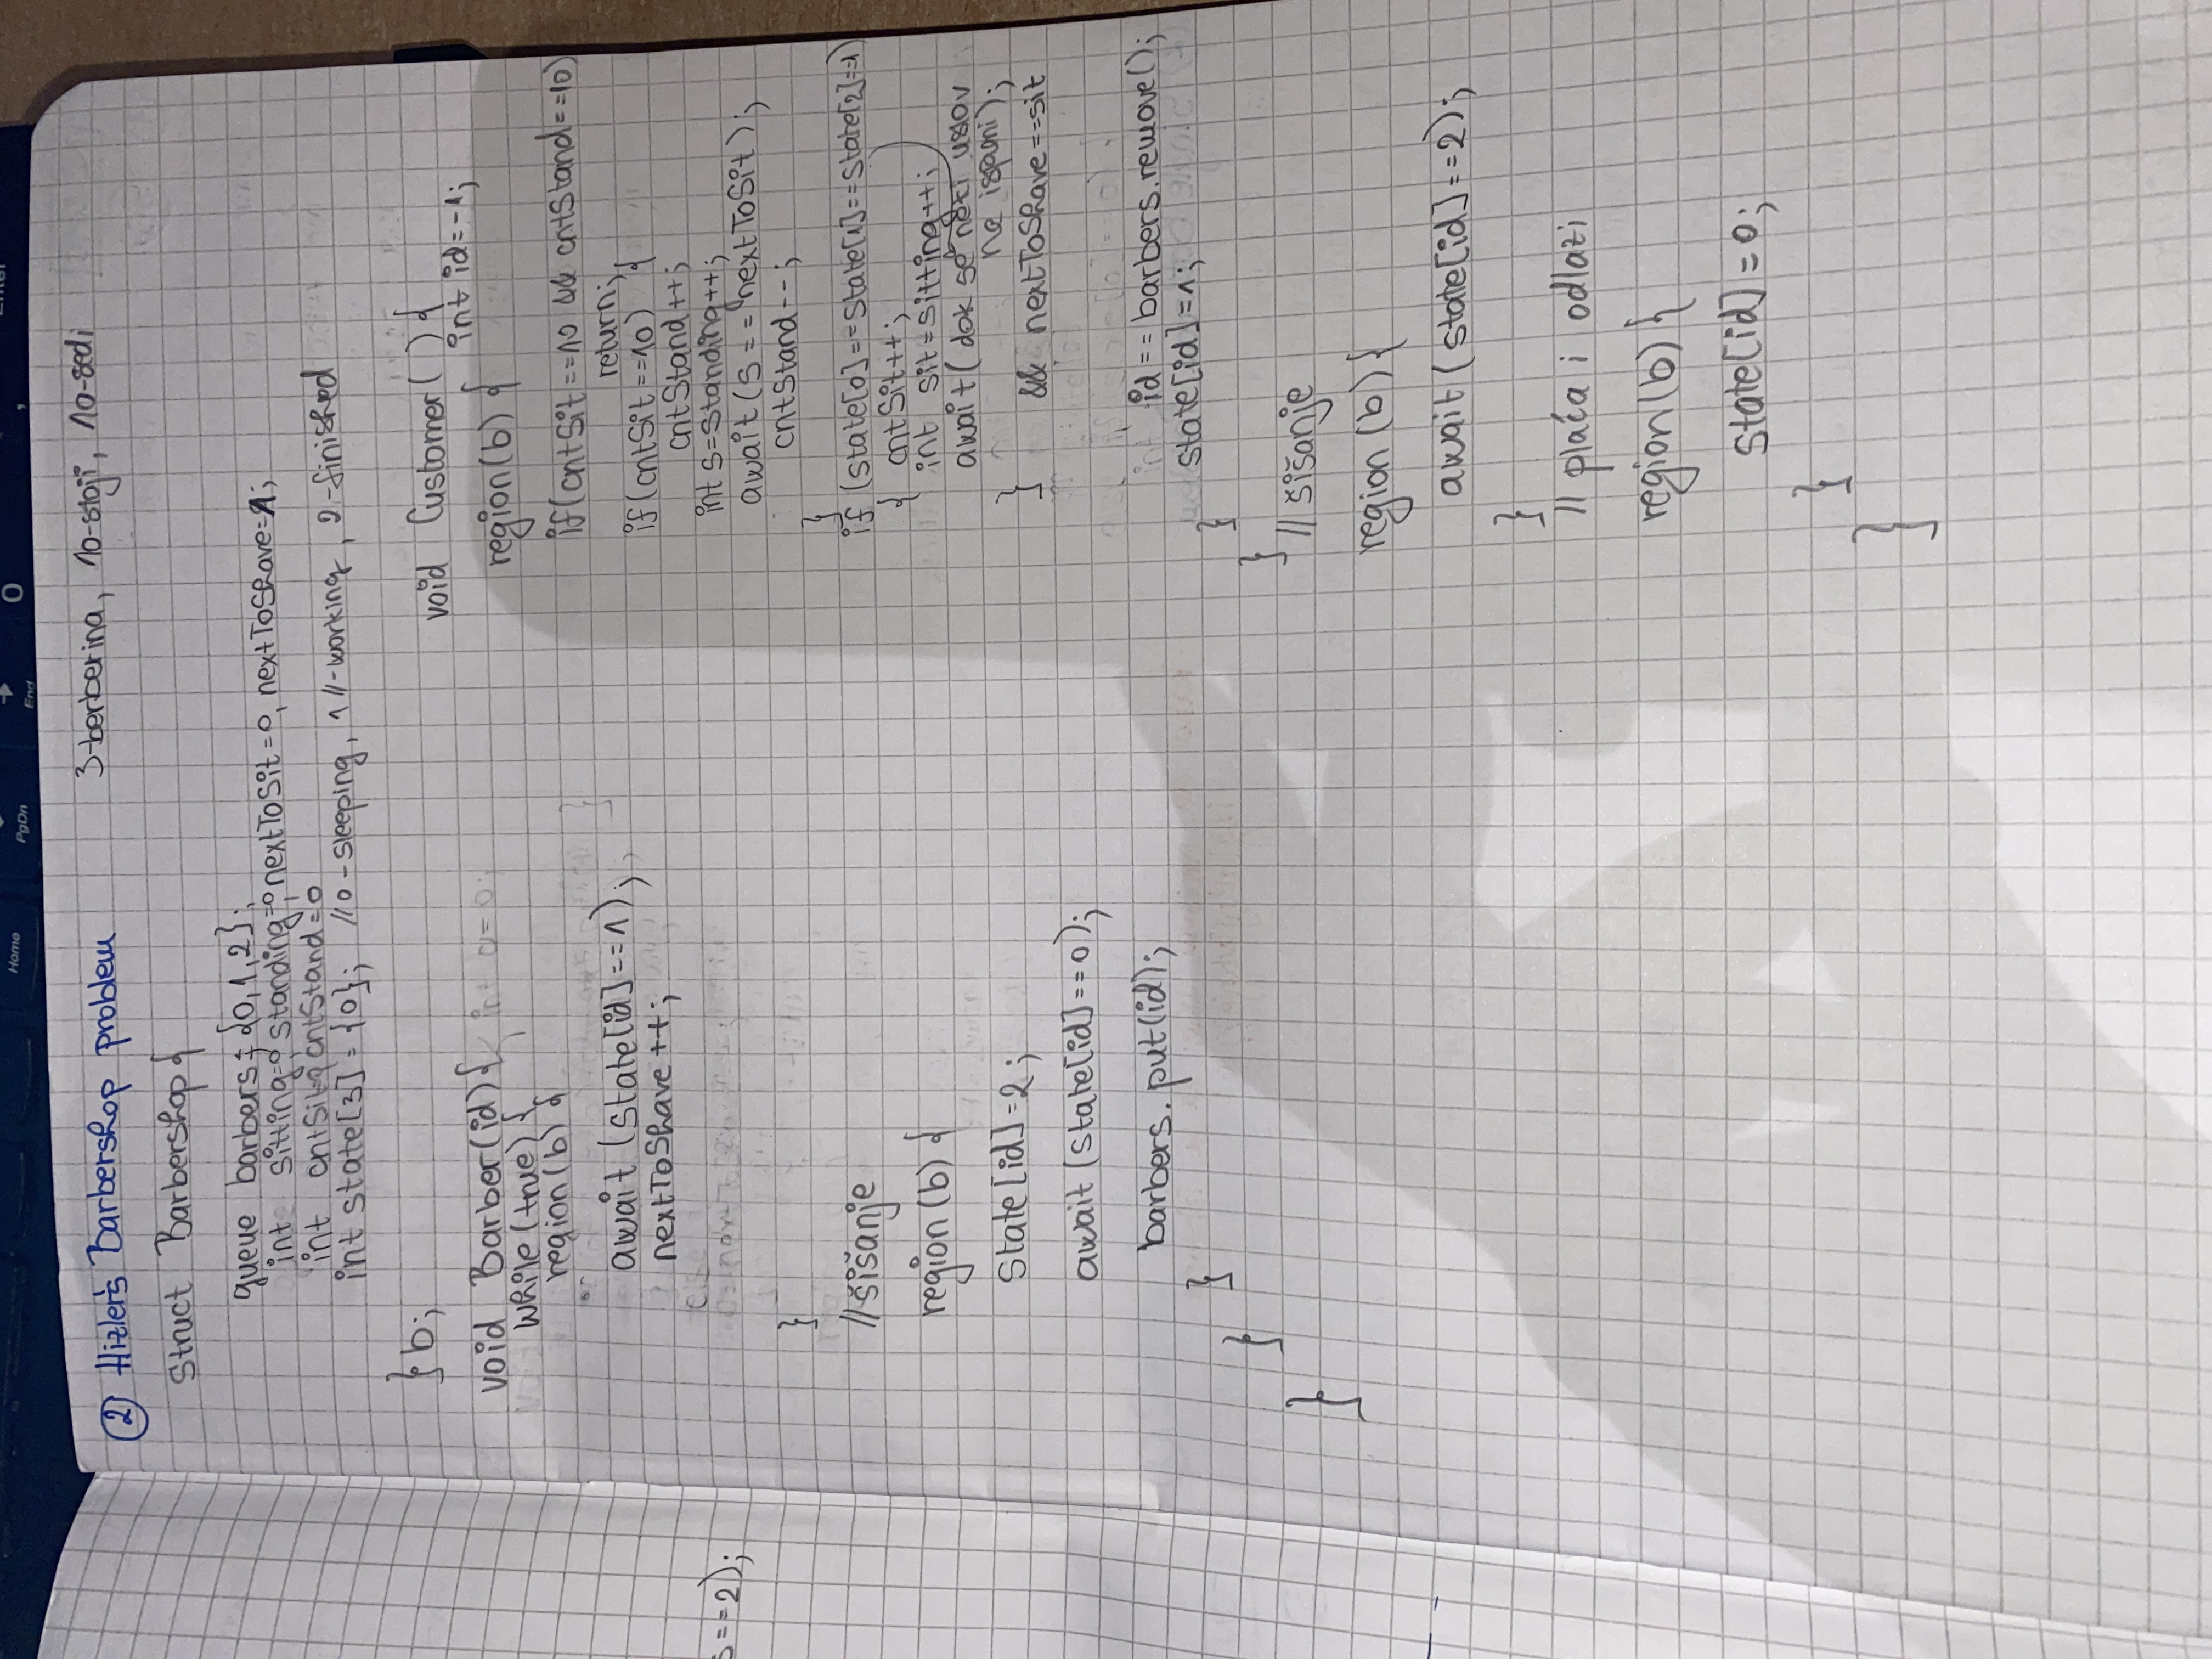 Home
PgDn
End
0
,
Enter
② Hizler's Barbershop problem
3-berberina, 10-stoji, 10-sedi
struct Barbershop{
queue barbers = {0,1,2};
int sitting=0, standing=0, nextToSit=0, nextToShave=1;
int cntSit=0, cntStand=0
int state[3] = {0}; //0-sleeping, 1//-working, 2-finished
} b;
void Barber(id){
while(true){
region(b) {
await (state[id]==1);
nextToShave++;
}
//šišanje
region(b) {
state[id]=2;
await (state[id]==0);
barbers.put(id);
}
}
}
s==2);
void Customer( ) {
int id=-1;
region(b) {
if(cntSit==10 && cntStand==10)
return;
if(cntSit==10) {
cntStand++;
int s=standing++;
await(s==nextToSit);
cntStand--;
}
if (state[0]==state[1]==state[2]==1)
{ cntSit++;
int sit=sitting++;
await( dok se neki uslov
ne ispuni);
} && nextToShave==sit
id == barbers.remove();
state[id]=1;
}
}
// šišanje
region(b){
await(state[id]==2);
}
// plaća i odlazi
region(b){
state[id]=0;
}
}